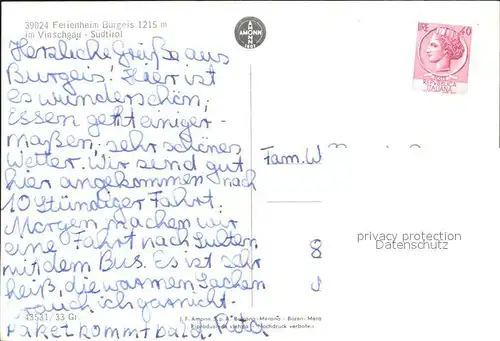 39024 Ferienheim Burgeis 1215 m
im Vinschgau - Südtirol
AMONN
1802
LIRE 40
REPUBBLICA
ITALIANA
Herzliche Grüße aus
Burgeis! Hier ist
es wunderschön;
Essen geht einiger-
maßen; sehr schönes
Wetter. Wir send gut
hier angekommen nach
10 Stündiger Fahrt.
Morgen machen wir
eine Fahrt nach Sulten
mit dem Bus. Es ist sehr
heiß, die warmen Sachen
brauch ich gar nicht.
Paket kommt bald!
Fam. W
8
privacy protection
Datenschutz
43531/33
J. F. Amonn S.p.A. Bolzano-Merano - Bozen-Meran
Riproduzione vietata - Nachdruck verboten